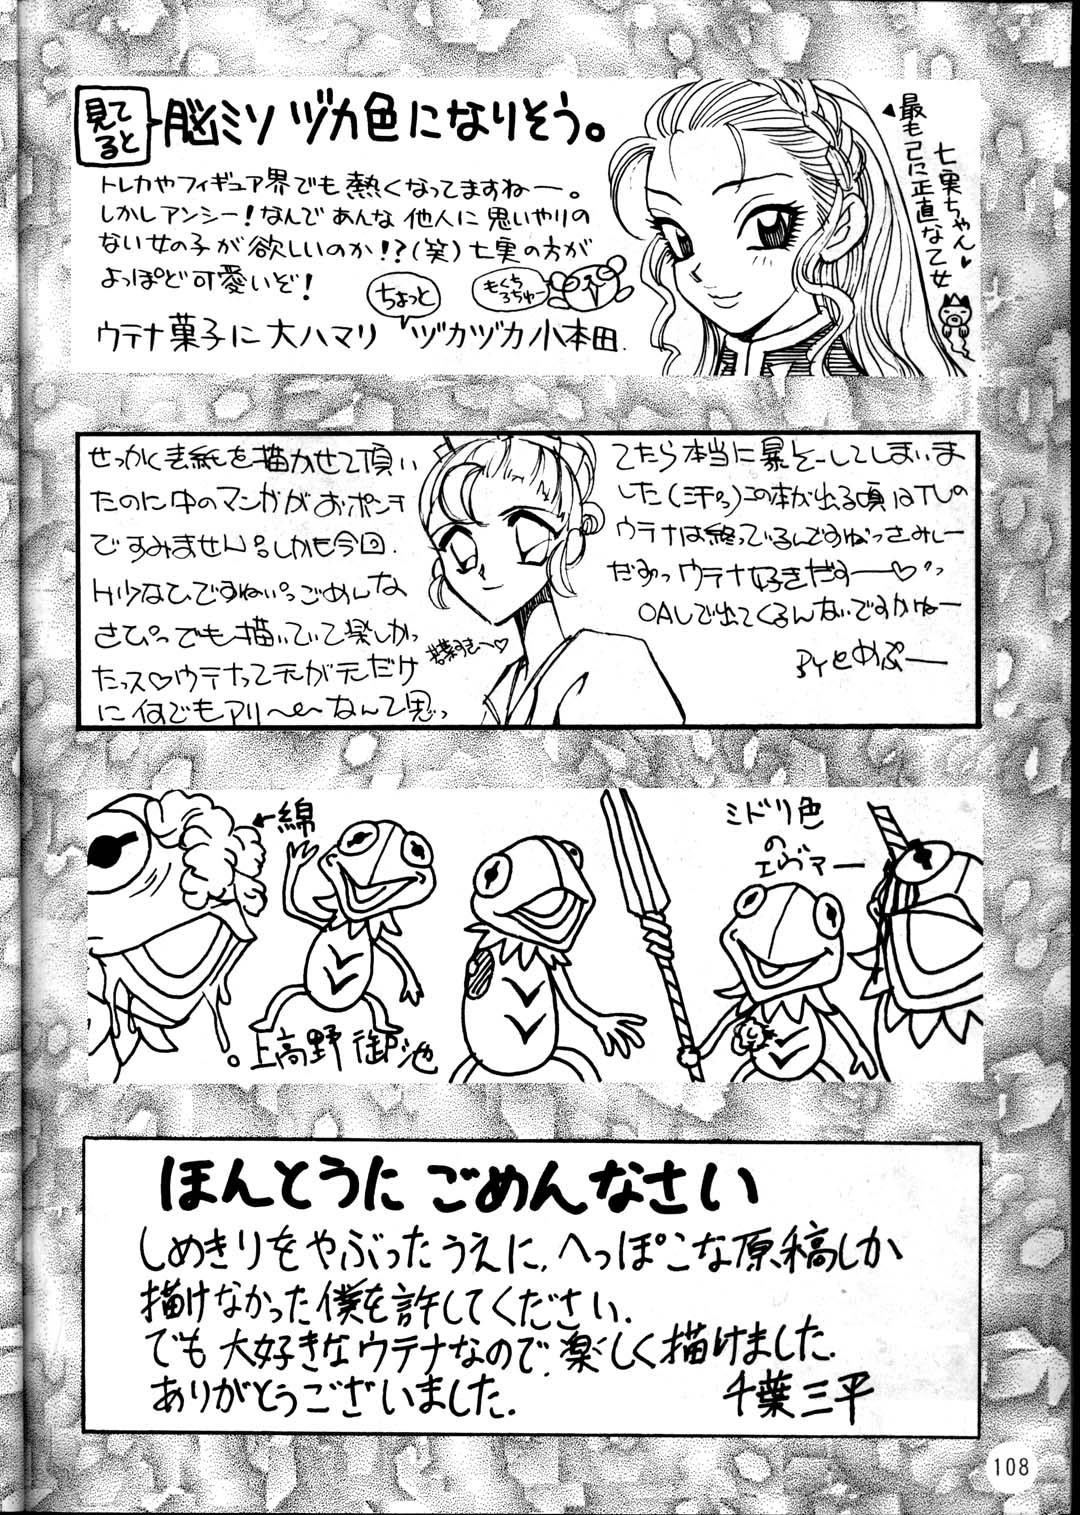 見てると
脳ミソ ヅカ色になりそう。
トレカやフィギュア界でも熱くなってますねー。
しかしアンシー!なんであんな他人に思いやりの
ない女の子が欲しいのか!?(笑)七実の方が
よっぽど可愛いぞ!
ちょっと
もくちろちゅー
ウテナ菓子に大ハマリ ヅカヅカ小本田.
七実ちゃん♥
最も己に正直な乙女
せっかく表紙を描かせて頂い
たのに中のマンガがおポンチ
ですみません。しかも今回.
H少なひですねぃ。ごめんな
さぴっでも描いてて楽しかっ
たっス♡ウテナって天が天だけ
に何でもアリ〜〜なんて思っ
若葉すきーへ♡
てたら本当に暴そーしてしまいま
した(汗。)この本が出る頃はTVの
ウテナは終っているんですねっさみしー
だぁっウテナ好きだすー♡っ
OAVで出てくるんないですかねー
BYとめぷー
←綿
上高野御池
ミドリ色
の
エヴァー
ほんとうに ごめんなさい
しめきりをやぶったうえに、へっぽこな原稿しか
描けなかった僕を許してください.
でも大好きなウテナなので、楽しく描けました.
ありがとうございました.
千葉三平
108